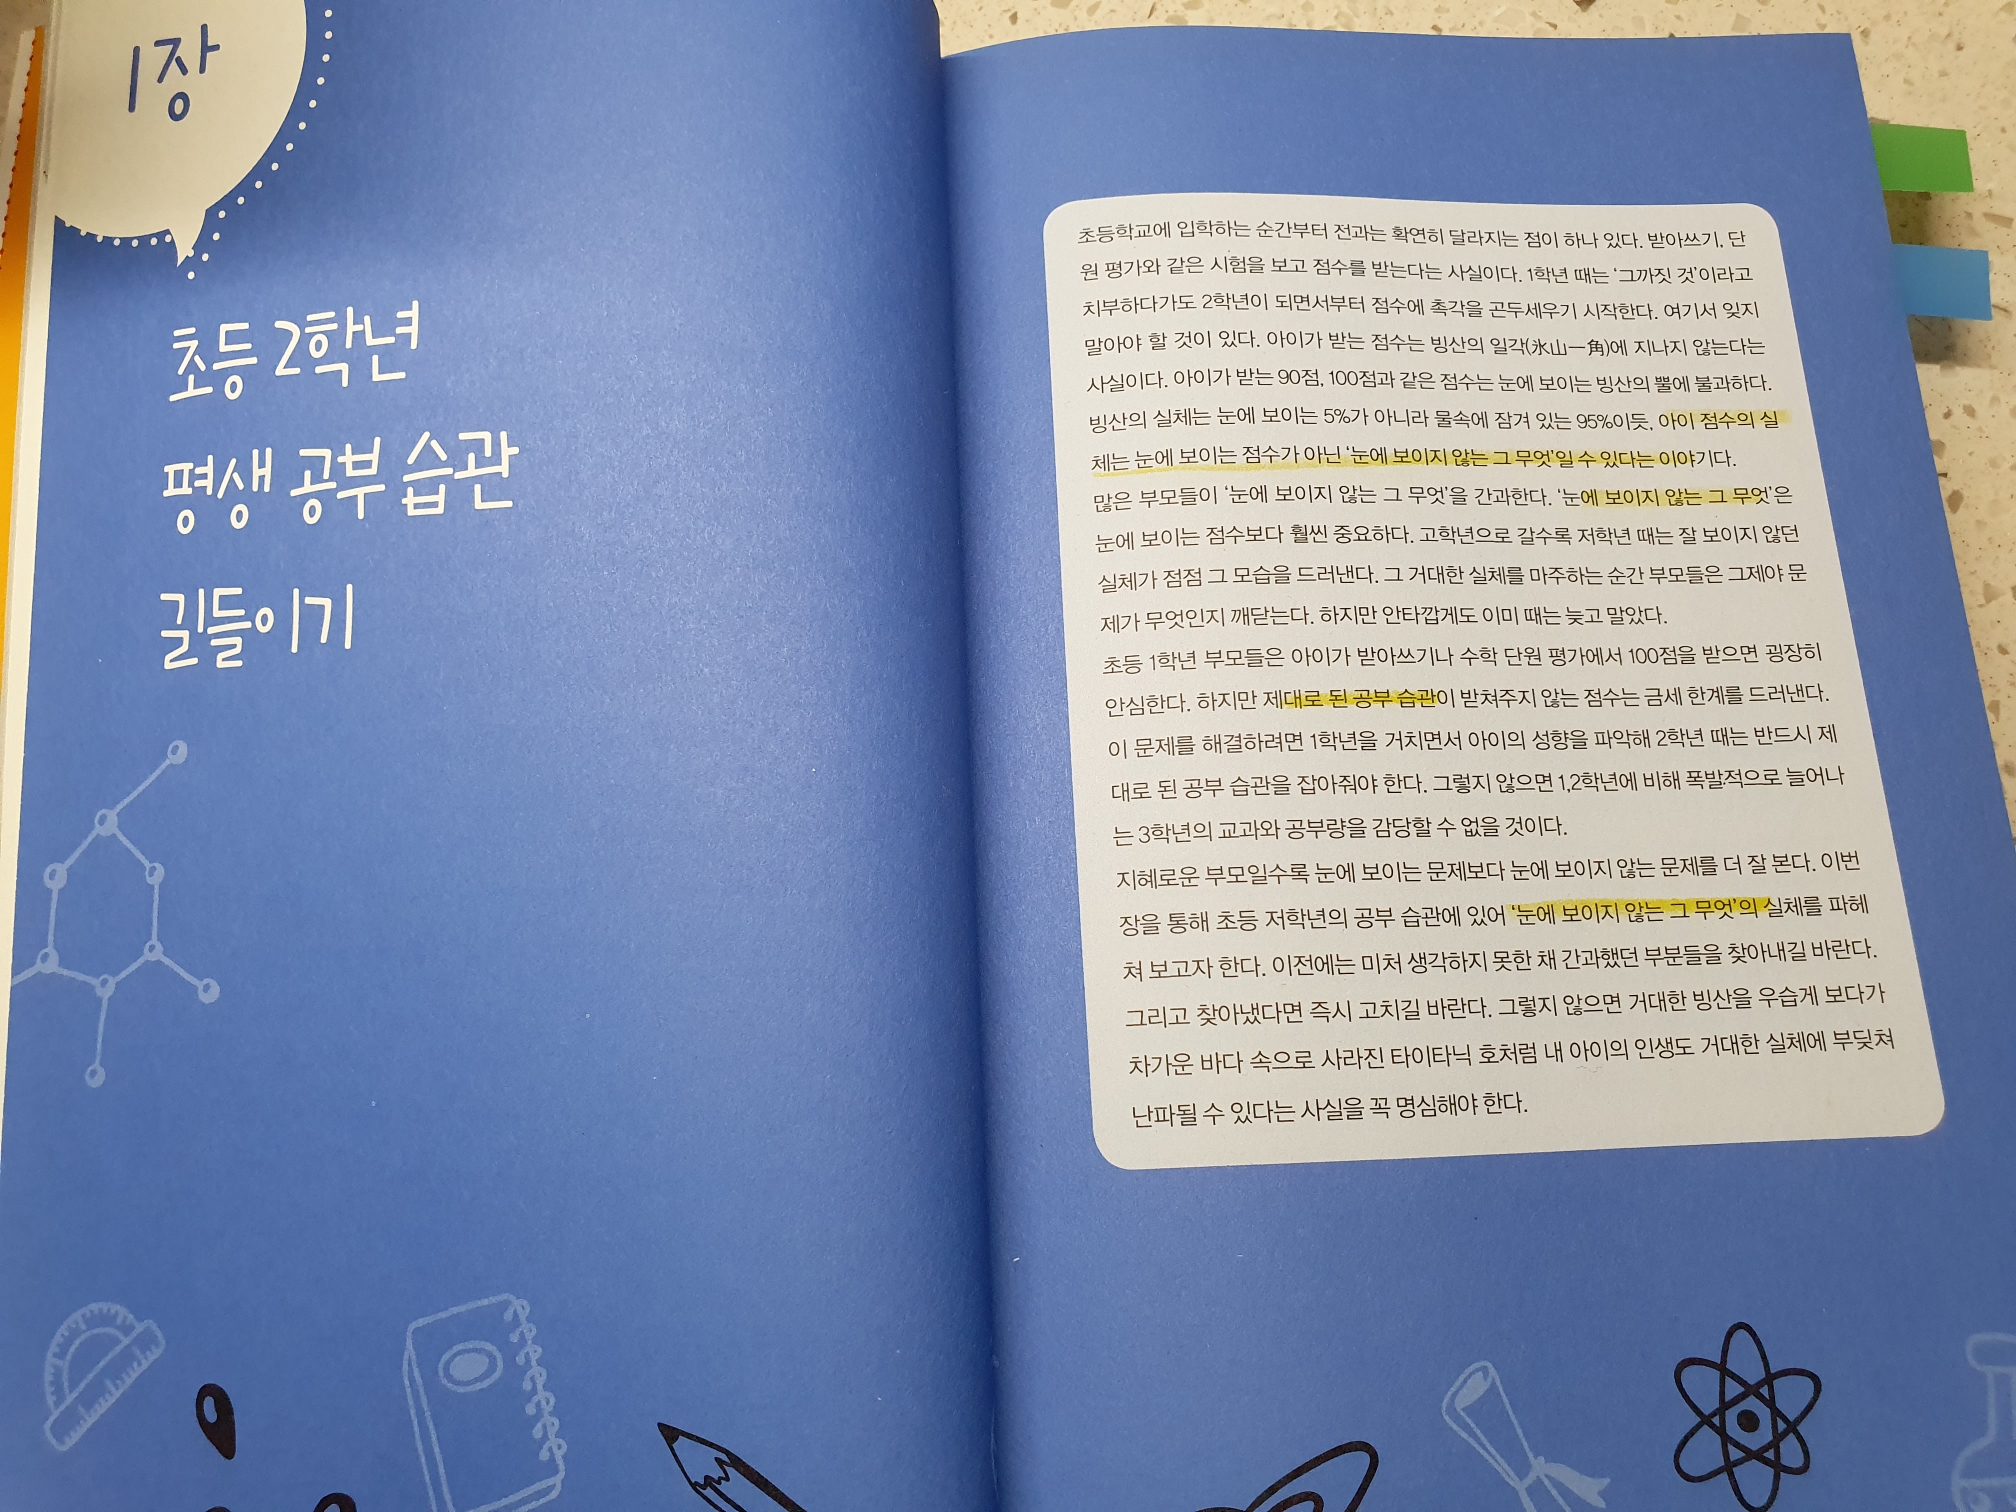 1장
초등 2학년
평생 공부 습관
길들이기
초등학교에 입학하는 순간부터 전과는 확연히 달라지는 점이 하나 있다. 받아쓰기, 단
원 평가와 같은 시험을 보고 점수를 받는다는 사실이다. 1학년 때는 ‘그까짓 것’이라고
치부하다가도 2학년이 되면서부터 점수에 촉각을 곤두세우기 시작한다. 여기서 잊지
말아야 할 것이 있다. 아이가 받는 점수는 빙산의 일각(氷山一角)에 지나지 않는다는
사실이다. 아이가 받는 90점, 100점과 같은 점수는 눈에 보이는 빙산의 뿔에 불과하다.
빙산의 실체는 눈에 보이는 5%가 아니라 물속에 잠겨 있는 95%이듯, 아이 점수의 실
체는 눈에 보이는 점수가 아닌 ‘눈에 보이지 않는 그 무엇’일 수 있다는 이야기다.
많은 부모들이 ‘눈에 보이지 않는 그 무엇’을 간과한다. ‘눈에 보이지 않는 그 무엇’은
눈에 보이는 점수보다 훨씬 중요하다. 고학년으로 갈수록 저학년 때는 잘 보이지 않던
실체가 점점 그 모습을 드러낸다. 그 거대한 실체를 마주하는 순간 부모들은 그제야 문
제가 무엇인지 깨닫는다. 하지만 안타깝게도 이미 때는 늦고 말았다.
초등 1학년 부모들은 아이가 받아쓰기나 수학 단원 평가에서 100점을 받으면 굉장히
안심한다. 하지만 제대로 된 공부 습관이 받쳐주지 않는 점수는 금세 한계를 드러낸다.
이 문제를 해결하려면 1학년을 거치면서 아이의 성향을 파악해 2학년 때는 반드시 제
대로 된 공부 습관을 잡아줘야 한다. 그렇지 않으면 1,2학년에 비해 폭발적으로 늘어나
는 3학년의 교과와 공부량을 감당할 수 없을 것이다.
지혜로운 부모일수록 눈에 보이는 문제보다 눈에 보이지 않는 문제를 더 잘 본다. 이번
장을 통해 초등 저학년의 공부 습관에 있어 ‘눈에 보이지 않는 그 무엇’의 실체를 파헤
쳐 보고자 한다. 이전에는 미처 생각하지 못한 채 간과했던 부분들을 찾아내길 바란다.
그리고 찾아냈다면 즉시 고치길 바란다. 그렇지 않으면 거대한 빙산을 우습게 보다가
차가운 바다 속으로 사라진 타이타닉 호처럼 내 아이의 인생도 거대한 실체에 부딪쳐
난파될 수 있다는 사실을 꼭 명심해야 한다.